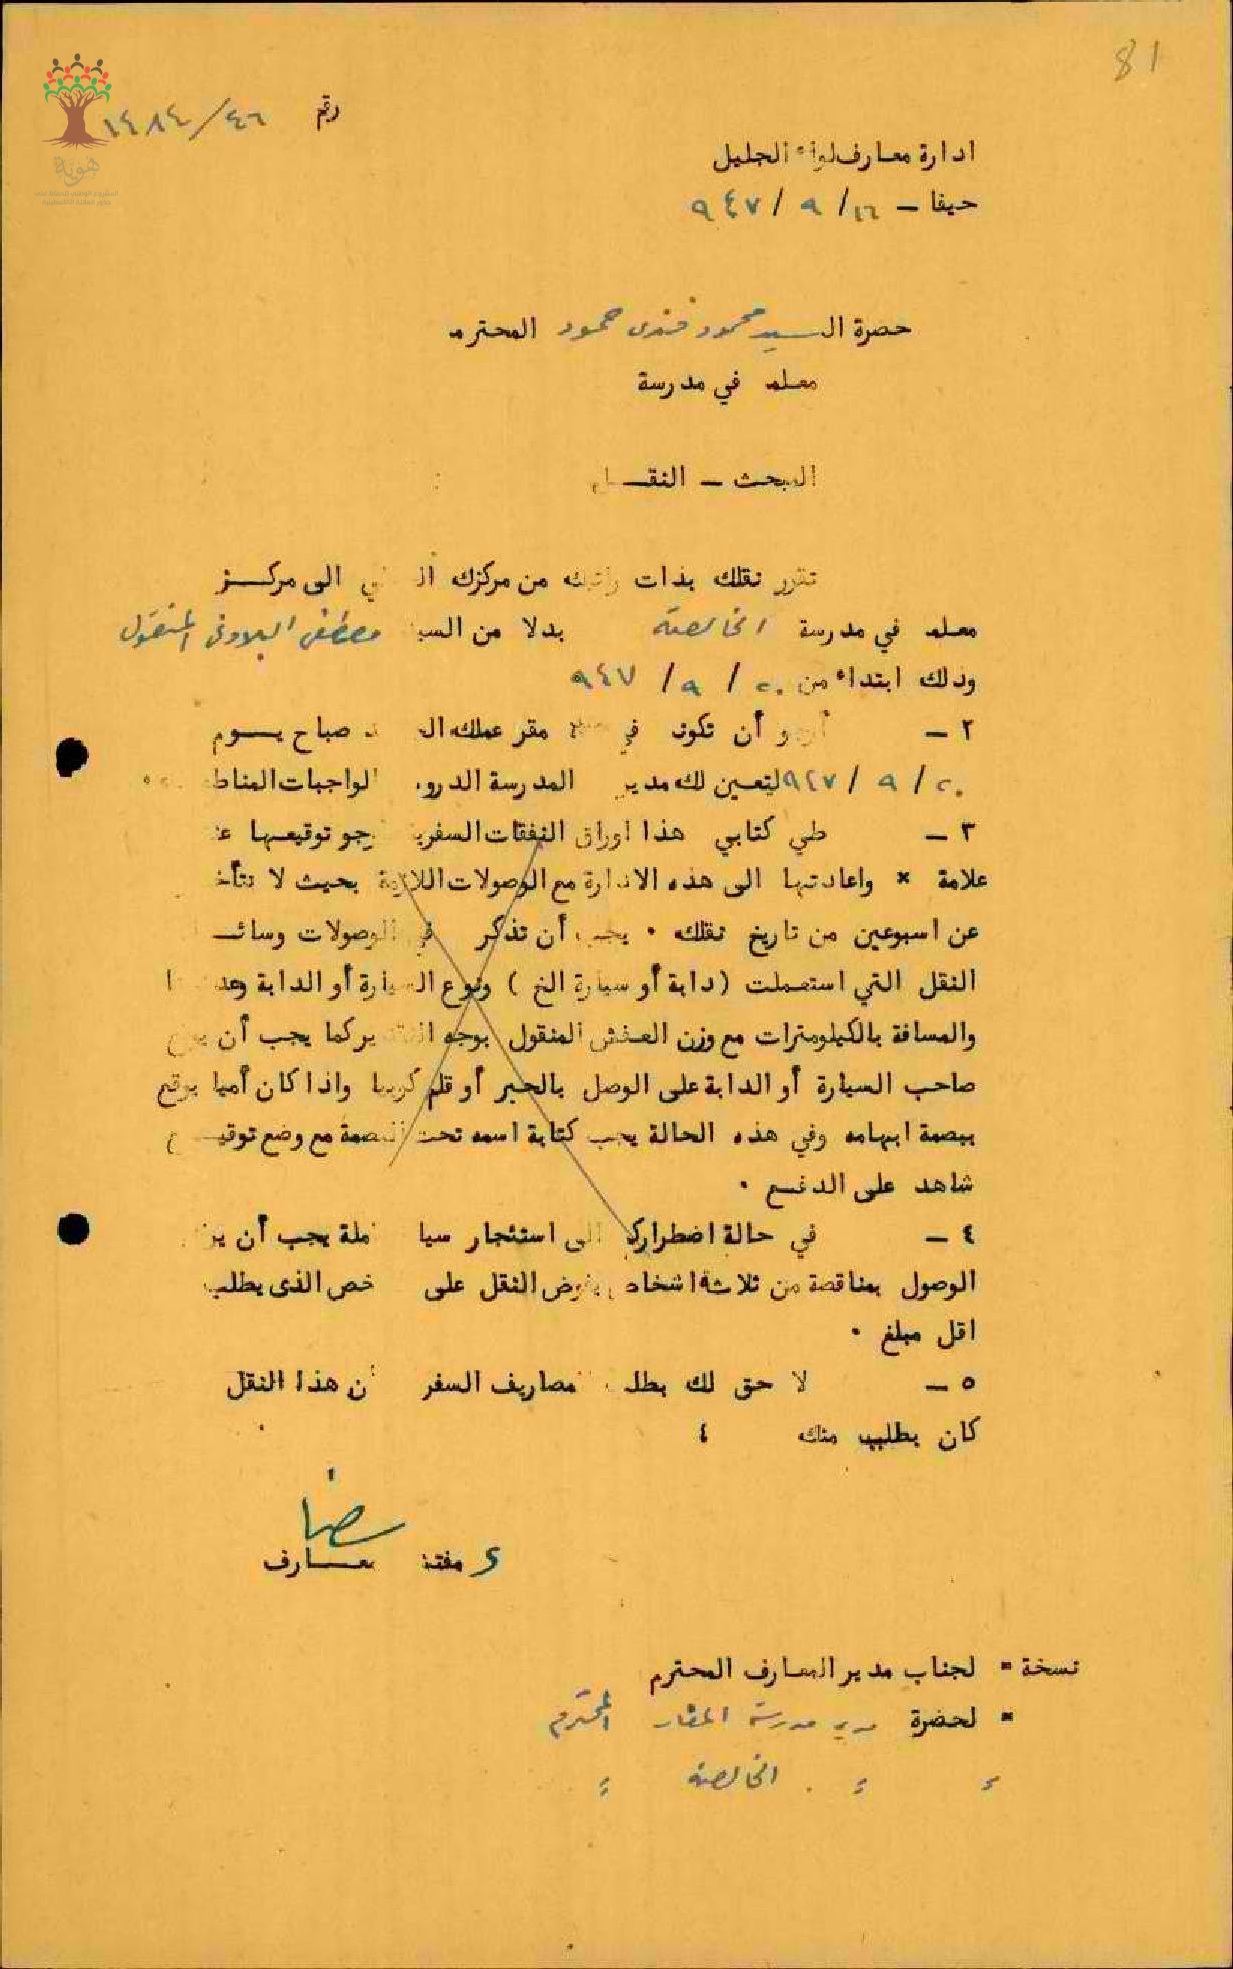 81
رقم ١٤٨٤/٤٦
ادارة معارف لواء الجليل
حيفا – ١٦/ ٩ / ٩٤٧
هوية
حضرة السيد محمود فندى حمود المحترم
معلم في مدرسة
المبحث – النقل
تقرر نقلك بذات راتبك من مركزك الى مركز
معلم في مدرسة الخالصة بدلا من السيد مصطفى المنقول
وذلك ابتداء من ٢٠ / ٩ / ٩٤٧
٢ – أرجو أن تكون في مقر عملك صباح يوم
٢٠ / ٩ / ٩٤٧ ليعين لك مدير المدرسة الدروس الواجبات المناطة
٣ – طي كتابي هذا اوراق النفقات السفرية ارجو توقيعها
علامة × واعادتها الى هذه الادارة مع الوصولات اللازمة بحيث لا تتأخر
عن اسبوعين من تاريخ نقلك ٠ يجب أن تذكر في الوصولات وسائل
النقل التي استعملت (دابة أو سيارة الخ ) ونوع السيارة أو الدابة وعددها
والمسافة بالكيلومترات مع وزن العفش المنقول بوجه التقدير كما يجب أن يوقع
صاحب السيارة أو الدابة على الوصل بالحبر أو قلم كوبيا واذا كان أميا يوقع
ببصمة ابهامه وفي هذه الحالة يجب كتابة اسمه تحت البصمة مع وضع توقيع
شاهد على الدفع ٠
٤ – في حالة اضطرارك الى استئجار يجب أن
الوصول بمناقصة من ثلاثة اشخاص يفوض النقل على الذى يطلب
اقل مبلغ ٠
٥ – لا حق لك بطلب مصاريف السفر هذا النقل
كان بطلب منك ٤
مفتش معارف
نسخة = لجناب مدير المعارف المحترم
= لحضرة مدير مدرسة المحترم
= = الخالصة =